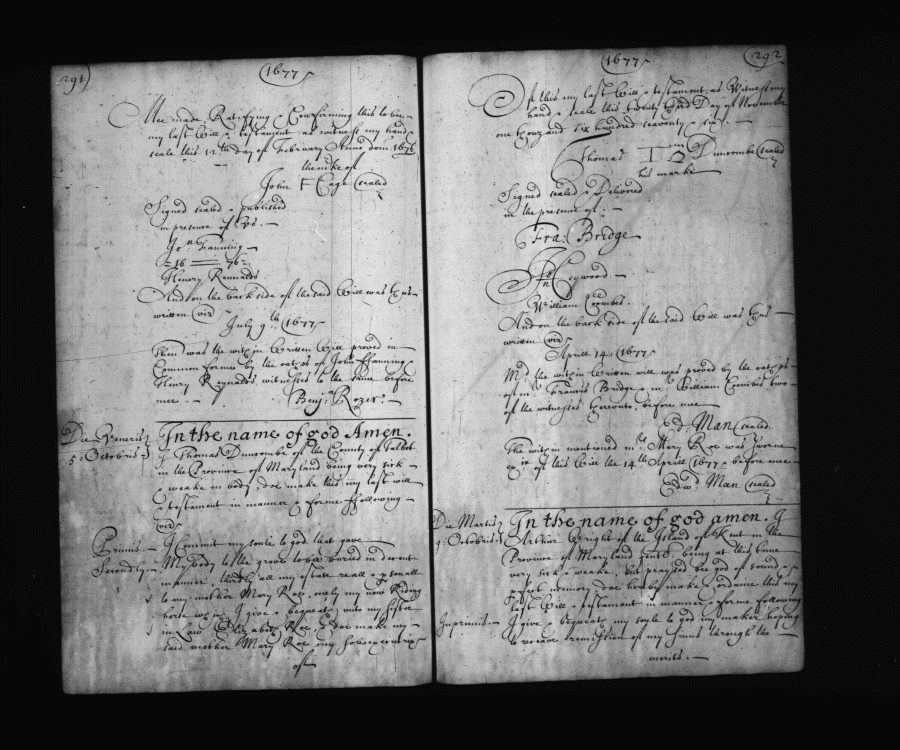 291)
(1677
Mee made, Ratifying & Confirming this to bee
my last Will & testament as witness my hand &
seale this 12th day of February Anno dom 1676
the mke of
John F Cage (sealed
Signed sealed & published
in presence of
Jon Fanning
=16 76=
Henery Rennalds
And on the back side of the said Will was
written (vizt
July 9th (1677
Then was the within Written Will proved in
Common forme by the oaths of John ffanning &
Henry Reynalds, witnesses to the same before
mee.
Benj: Rozer:
Die Veneris
5: Octobris
In the name of god Amen.
I Thomas Duncombe of the County of Talbot
in the Province of Maryland being very sick
& weake in body, doe make this my last will
& testament in manner & forme ffollowing
vizt
Primis I Commit my soule to god that gave
Secondly My body to the grave to bee buried in decent
manner, all my estate reall & psonall
to my mother Mary Roe, onely my now Riding
horse I give & bequeath unto my sister
in Law Elizabeth Roe & doe make my
said mother Mary Roe my sole executrix
of
(1677
(292
Of this my last Will & testament, as Witness my
hand & seale this twenty Day of November
one thousand six hundred seaventy & six.
Thomas T D Duncombe (sealed
his marke
Signed sealed & Delivered
in the presence of:
Fra: Bridge
Jon Heywood
William Coombes.
And on the back side of the said Will was
written (vizt
Aprill 14: (1677
Md the within written will was proved by the oaths
of mr Francis Bridge & mr William Coombes two
of the witnesses before mee
Edd: Man (sealed
The within mentioned mrs Mary Roe was sworne
exix of this Will the 14th Aprill 1677 before mee
Edwd Man (sealed
Die Martis
9: Octobris
In the name of god amen. I
Arthur Wright of the Island of Kent in the
Province of Maryland gentl: being at this time
very sick & weake, but praysed bee god of sound &
pfect memory, doe hereby make & ordaine this my
last Will & testament in manner & forme following
Inprimis I give & bequeath my soule to god my maker hoping
to receive remission of my sinns through the
merits.